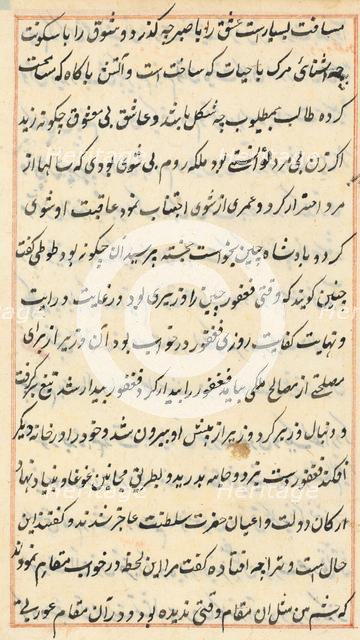 مسافت بسیار است عشق را با صبر چه کذر و شوق را با سکونت
چه اشنای مرک با حیات که ساخت است و آتش با کاه که ساخت
کرده طالب بی مطلوب چه شکل باشد و عاشق بی معشوق چکونه زید
اکر زن بی مرد توانستی بود ملکه روم بی شوی بودی که سالها از
مرد احتراز کرد و عمری از شوی اجتناب نمود عاقبت او شوی
کرد و بادشاه چین بخواست خجسته پرسید آن چکونه بود طوطی کفت
چنین کویند که وقتی فغفور چین را وزیری بود در غایت درایت
و نهایت کفایت روزی فغفور در خواب بود آن وزیر از برای
مصلحتی از مصالح ملکی بیامد فغفور را بیدار کرد فغفور بیدار شد تیغ برکرفت
و دنبال وزیر کرد وزیر از پیش او بیرون شد و خود را در خانه دیکر
افکند فغفور دست ببرد و جامه بدرید و بطریق مجانین غوغا و بنیاد نهاد
ارکان دولت و اعیان حضرت سلطنت عاجز شدند و کفتند این
حال است و ترا چه افتاده کفت مرا این لحظه در خواب مقام نمودند
که من مثل آن مقام وقتی ندیده بودم و در آن مقام عورتی
heritage
Heritage
Heritage